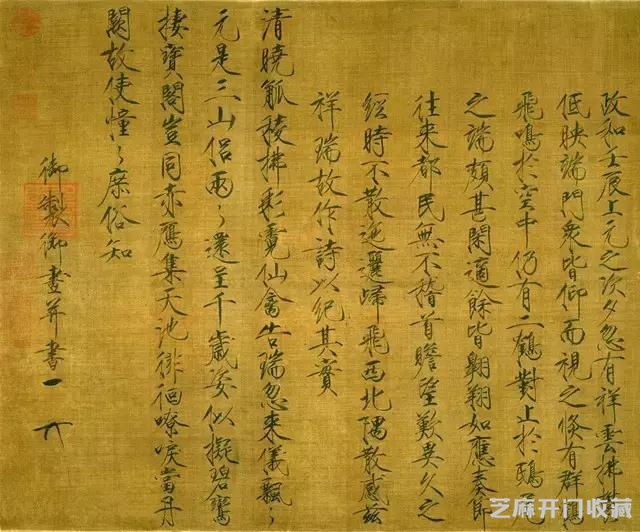 政和壬辰上元之次夕忽有祥雲拂鬱
低映端門衆皆仰而視之倏有群鶴
飛鳴於空中仍有二鶴對止於鴟尾
之端頗甚閑適餘皆翱翔如應奏節
往來都民無不稽首瞻望歎異久之
經時不散迤邐歸飛西北隅散感茲
祥瑞故作詩以紀其實
清曉觚稜拂彩霓仙禽告瑞忽來儀飄〻
元是三山侶兩〻還呈千歲姿似擬碧鸞
棲寶閣豈同赤鴈集天池徘徊嘹唳當丹
闕故使憧〻庶俗知
御製御畫并書
芝麻开门收藏